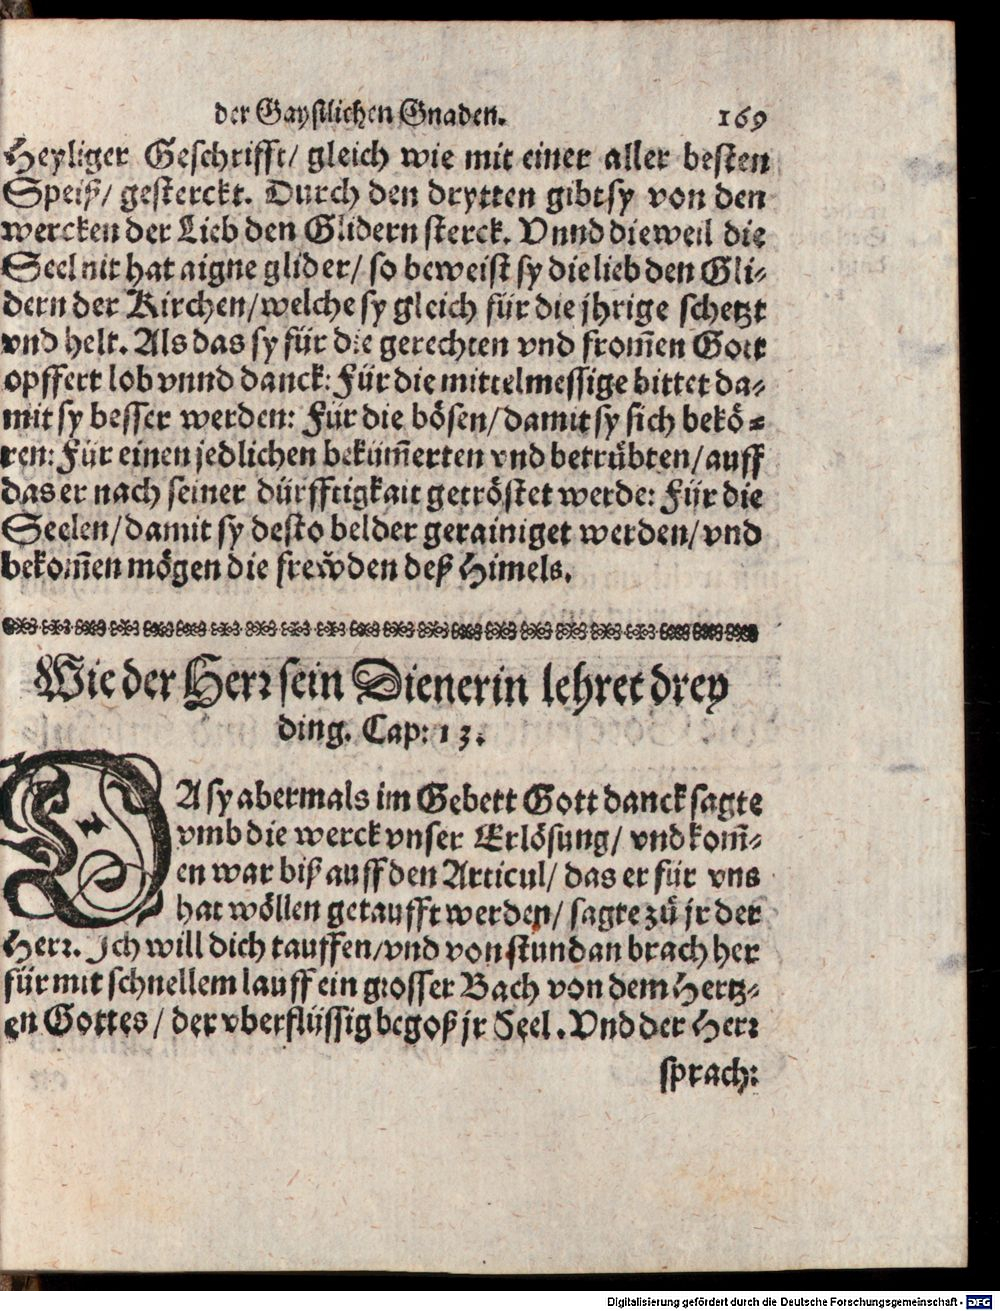 der Gaystlichen Gnaden. 169
Heyliger Geschrifft/ gleich wie mit einer aller besten
Speiß/ gesterckt. Durch den drytten gibt sy von den
wercken der Lieb den Glidern sterck. Vnnd dieweil die
Seel nit hat aigne glider/ so beweist sy die lieb den Gli-
dern der Kirchen/ welche sy gleich für die jhrige schetzt
vnd helt. Als das sy für die gerechten vnd from̃en Gott
opffert lob vnnd danck: Für die mittelmessige bittet da-
mit sy besser werden: Für die bösen/ damit sy sich bekö-
ren: Für einen jedlichen beküm̃erten vnd betrübten/ auff
das er nach seiner dürfftigkait getröstet werde: Für die
Seelen/ damit sy desto belder gerainiget werden/ vnd
bekom̃en mögen die frewden deß Himels.
Wie der Herr sein Dienerin lehret drey
ding. Cap: 13.
DA sy abermals im Gebett Gott danck sagte
vmb die werck vnser Erlösung/ vnd kom̃-
en war biß auff den Articul/ das er für vns
hat wöllen getaufft werden/ sagte zů jr der
Herr. Ich will dich tauffen/ vnd von stund an brach her
für mit schnellem lauff ein grosser Bach von dem Hertz-
en Gottes/ der vberflüssig begoß jr Seel. Vnd der Herr
sprach:
Digitalisierung gefördert durch die Deutsche Forschungsgemeinschaft - DFG